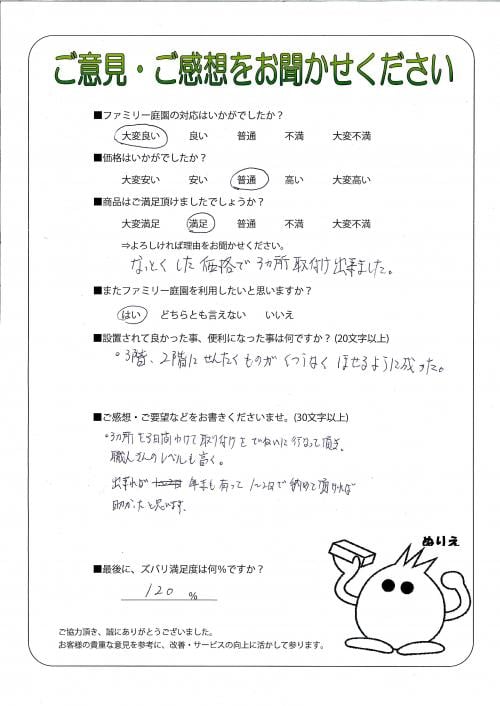 ご意見・ご感想をお聞かせください
■ファミリー庭園の対応はいかがでしたか？
大変良い 良い 普通 不満 大変不満
■価格はいかがでしたか？
大変安い 安い 普通 高い 大変高い
■商品はご満足頂けましたでしょうか？
大変満足 満足 普通 不満 大変不満
⇒よろしければ理由をお聞かせください。
なっとくした価格で3ヵ所取付け出来ました。
■またファミリー庭園を利用したいと思いますか？
はい どちらとも言えない いいえ
■設置されて良かった事、便利になった事は何ですか？(20文字以上)
。3階、2階にせんたくものがくつうなくほせるように成った。
■ご感想・ご要望などをお書きくださいませ。(30文字以上)
。3ヵ所を3日間かけて取り付けをていねいに行なって頂き、
職人さんのレベルも高く。
出来れば 年末も有って1～2日で納めて頂ければ
助かったと思います。
ぬりえ
■最後に、ズバリ満足度は何％ですか？
120 %
ご協力頂き、誠にありがとうございました。
お客様の貴重な意見を参考に、改善・サービスの向上に活かして参ります。